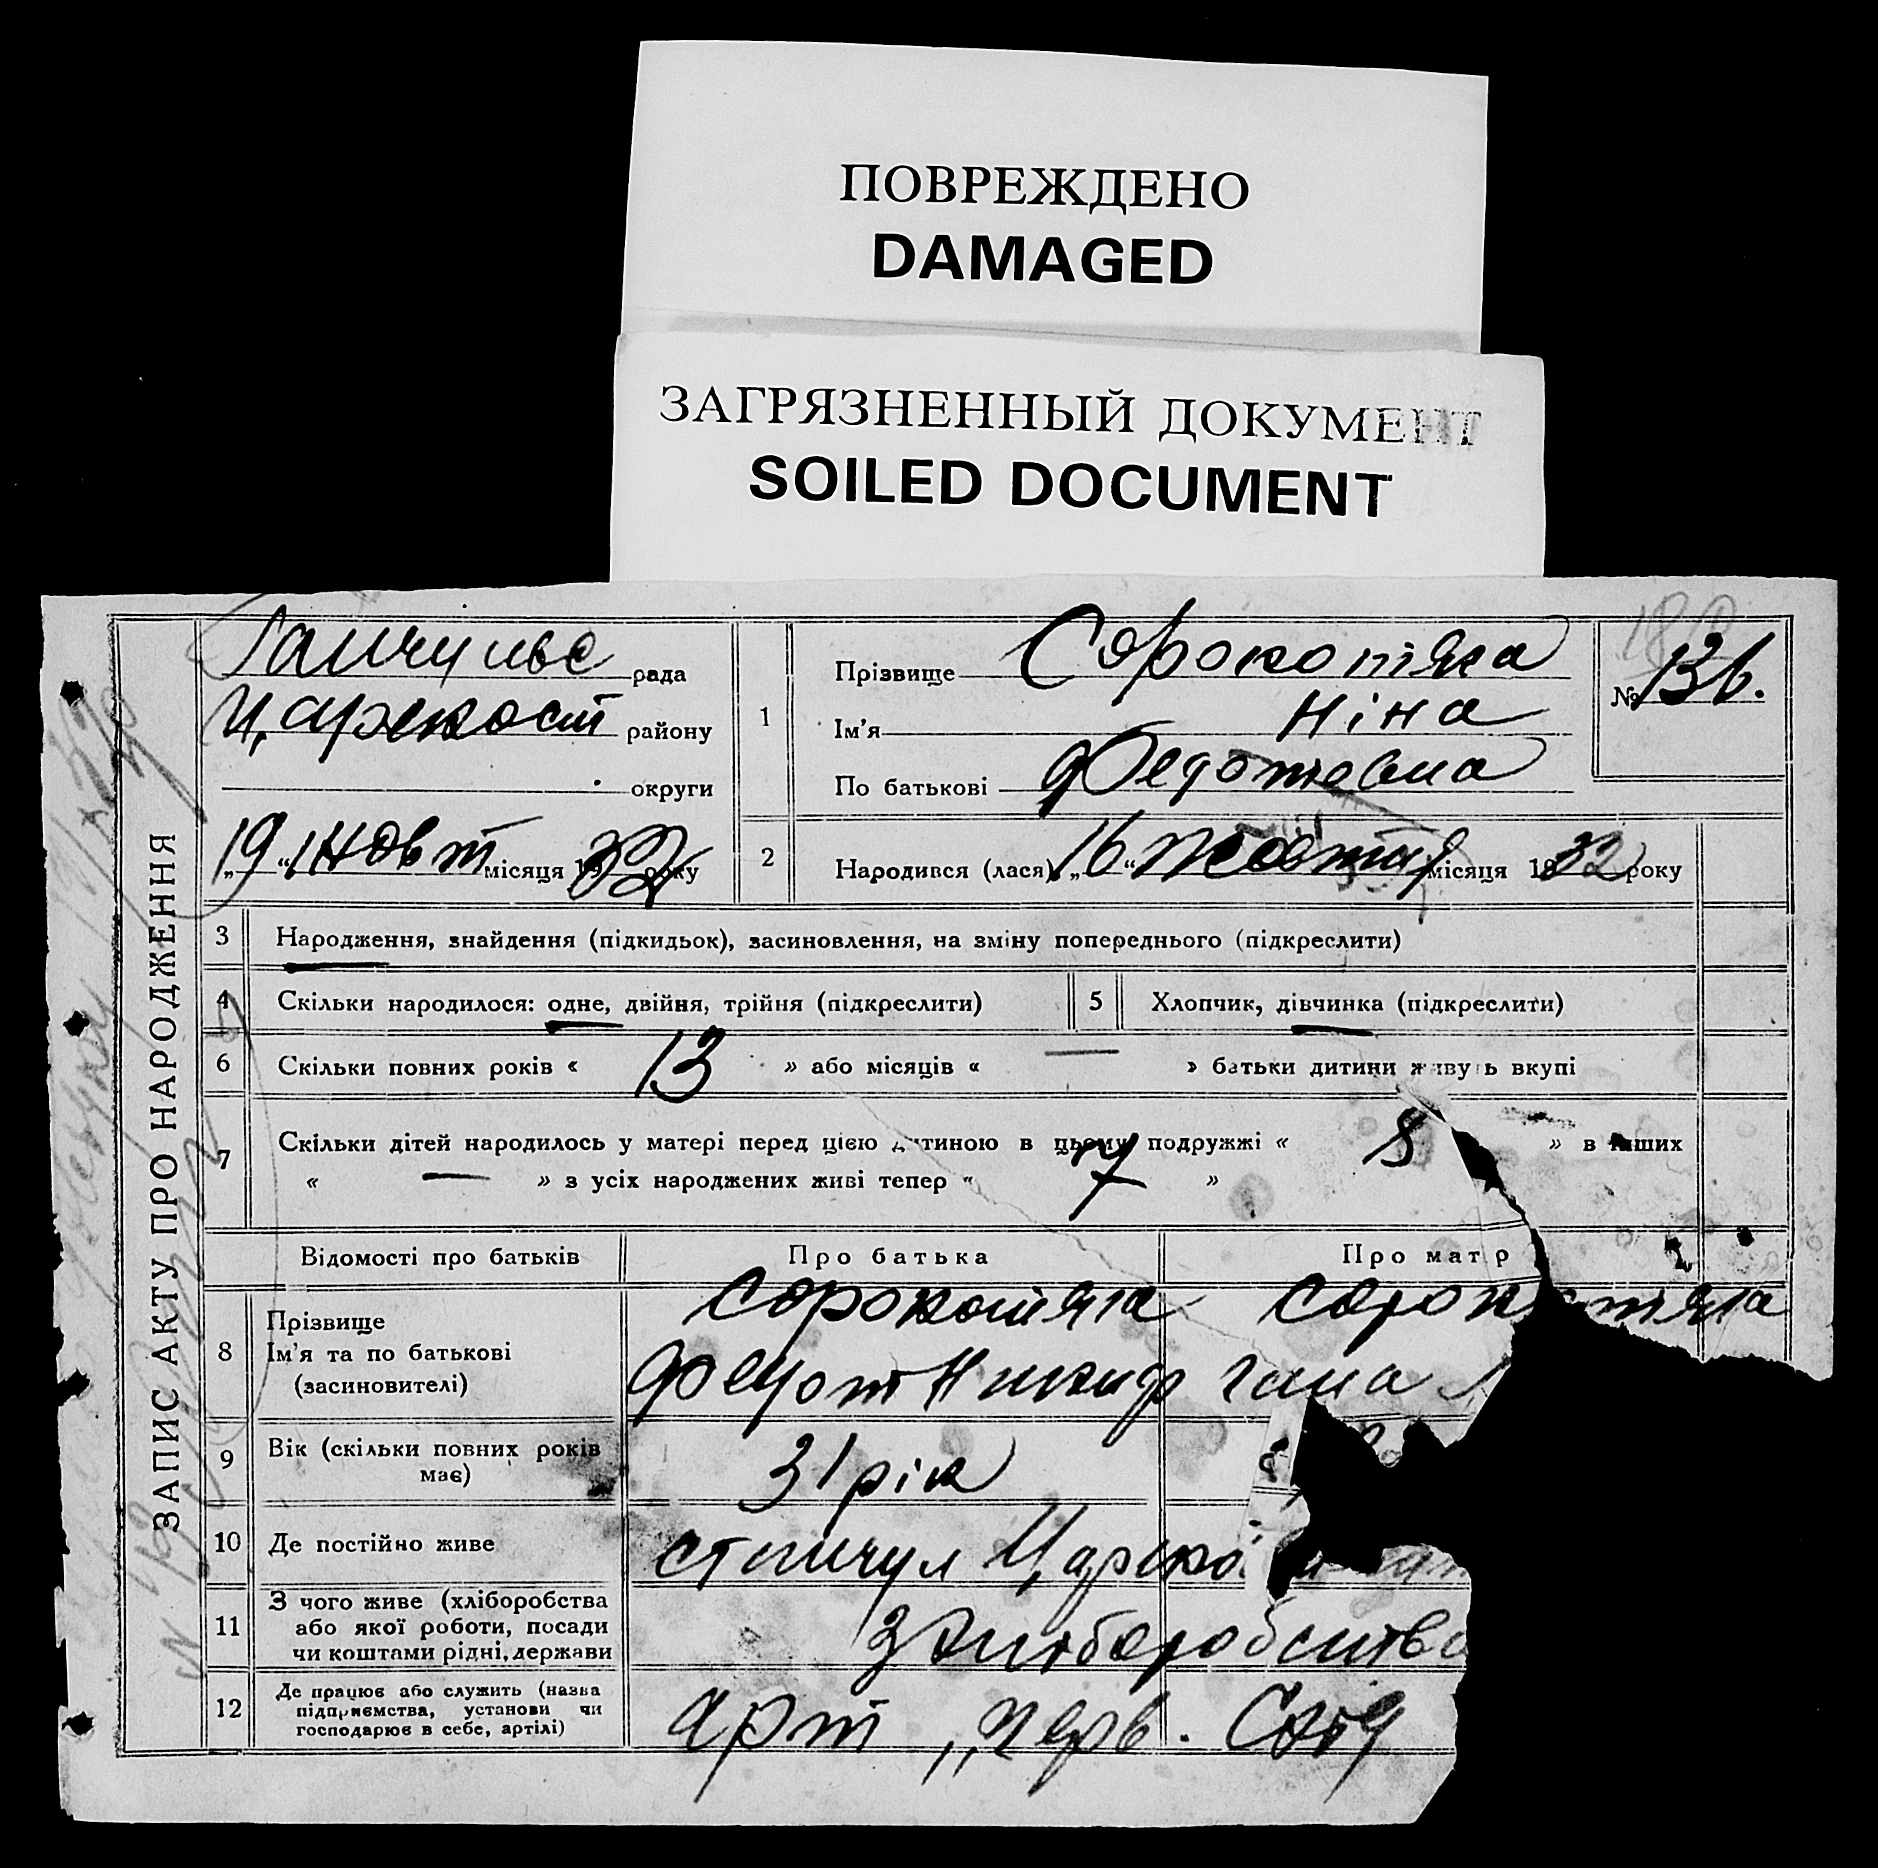 ПОВРЕЖДЕНО
DAMAGED
ЗАГРЯЗНЕННЫЙ ДОКУМЕНТ
SOILED DOCUMENT
ЗАПИС АКТУ ПРО НАРОДЖЕННЯ
рада
району
округи
„19“ Жовт місяця 1932 року
1
Прізвище Сорокотяга
Ім'я Ніна
По батькові Федотовна
№ 136.
2
Народився (лася) „16“ Жовтня місяця 1932 року
3 Народження, знайдення (підкидьок), засиновлення, на зміну попереднього (підкреслити)
4 Скільки народилося: одне, двійня, трійня (підкреслити)
5 Хлопчик, дівчинка (підкреслити)
6 Скільки повних років « 13 » або місяців « — » батьки дитини живуть вкупі
7 Скільки дітей народилось у матері перед цією дитиною в цьому подружжі « 8 » в інших
« — » з усіх народжених живі тепер « 7 »
Відомості про батьків Про батька Про матір
8 Прізвище Сорокотяга Сорокотяга
Ім'я та по батькові Федот Никиф Гана
(засиновителі)
9 Вік (скільки повних років має) 31 рік
10 Де постійно живе
11 З чого живе (хліборобства або якої роботи, посади чи коштами рідні, держави З хліборобства
12 Де працює або служить (назва підприємства, установи чи господарює в себе, артілі) Арт „Черв.